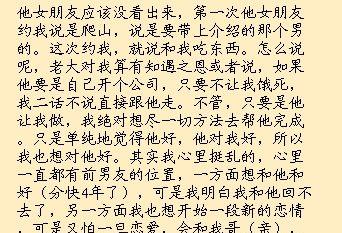 他女朋友应该没看出来，第一次他女朋友
约我说是爬山，说是要带上介绍的那个男
的。这次约我，就说和我吃东西。怎么说
呢，老大对我算有知遇之恩或者说，如果
他要是自己开个公司，只要不让我饿死，
我二话不说直接跟他走。不管，只要是他
让我做，我绝对想尽一切方法去帮他完成
。只是单纯地觉得他好，他对我好，所以
我也想对他好。其实我心里挺乱的，心里
一直都有前男友的位置，一方面想和他和
好（分快4年了），可是我明白我和他回不
去了，另一方面我也想开始一段新的恋情
，可是又怕一旦恋爱，会和我哥（亲），